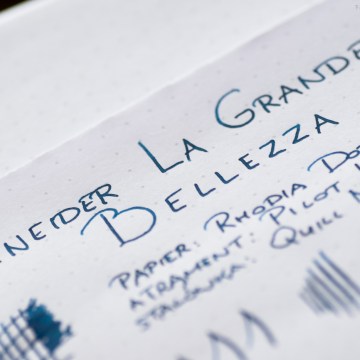 NEIDER LA GRANDE
BELLEZZA
PAPIER: RHODIA DO
ATRAMENT: PILOT
STALÓWKA: QUILL